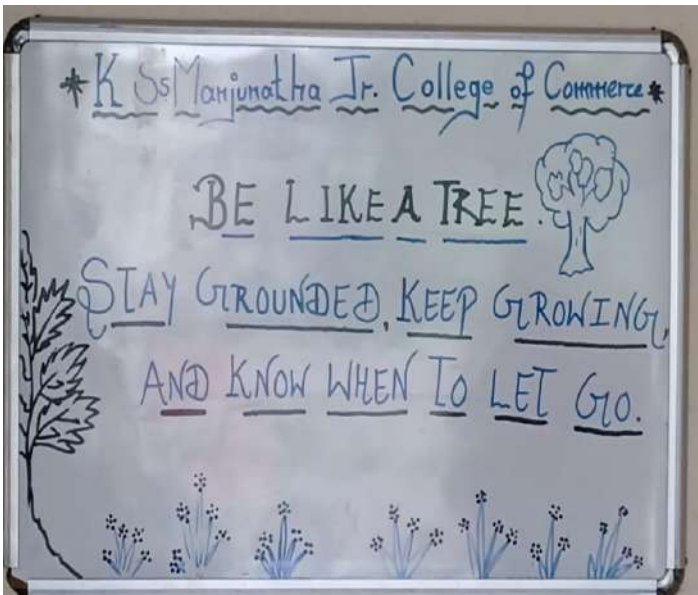 * K Ss Manjunatha Jr. College of Commerce *
BE LIKE A TREE.
STAY GROUNDED, KEEP GROWING,
AND KNOW WHEN TO LET GO.